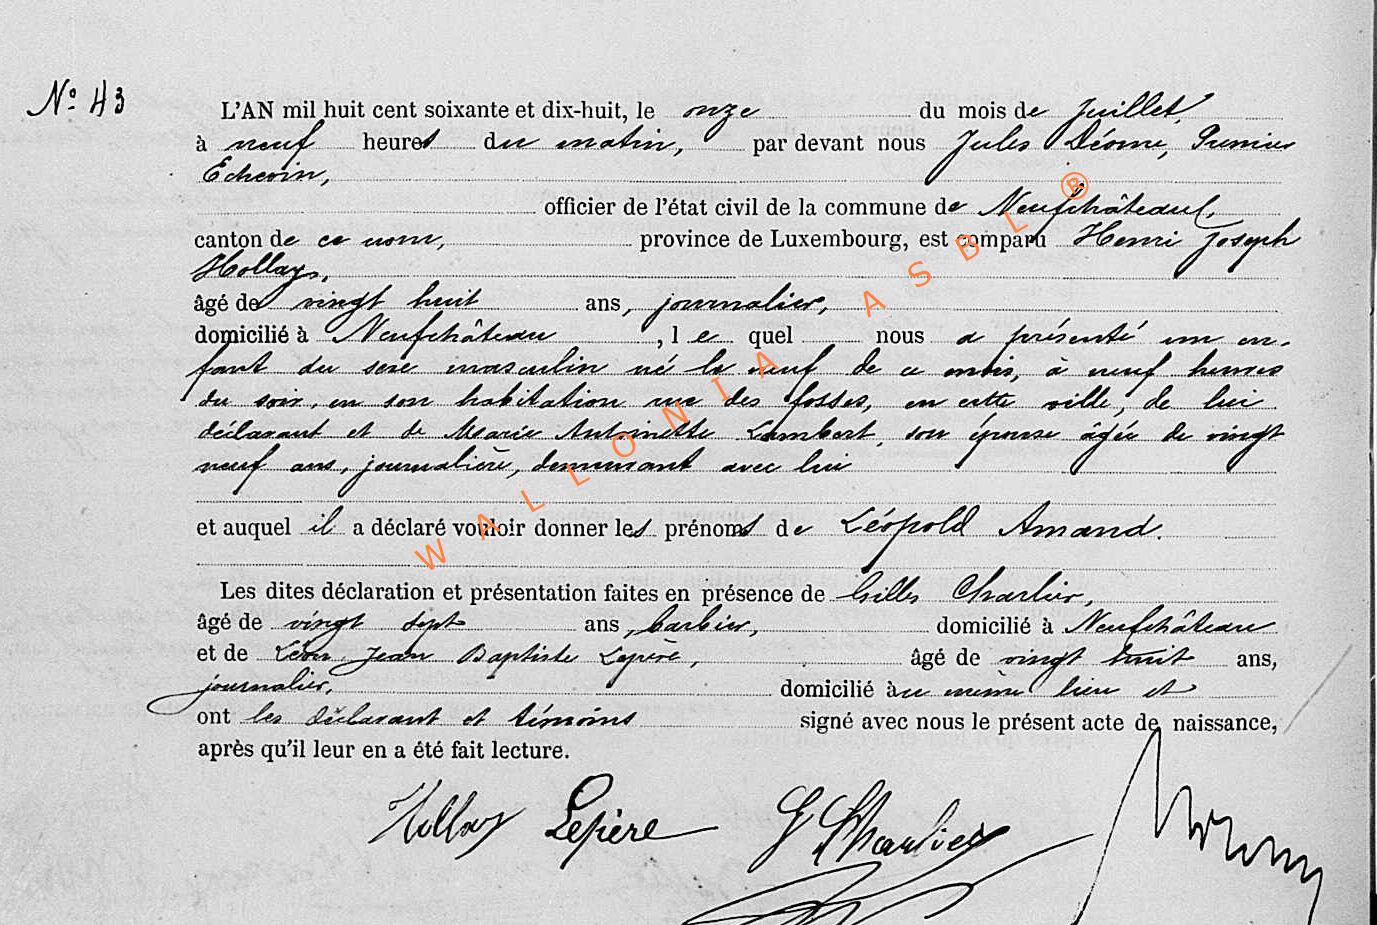 N° 43
L'AN mil huit cent soixante et dix-huit, le onze du mois de Juillet,
à neuf heures du matin, par devant nous Jules Déome, Premier
Echevin,
officier de l'état civil de la commune de Neufchâteau,
canton de ce nom, province de Luxembourg, est comparu Henri Joseph
Hollay,
âgé de vingt huit ans, journalier,
domicilié à Neufchâteau, le quel nous a présenté un en-
fant du sexe masculin né le neuf de ce mois, à neuf heures
du soir, en son habitation rue des fosses, en cette ville, de lui
déclarant et de Marie Antoinette Lambert, son épouse âgée de vingt
neuf ans, journalière, demeurant avec lui
et auquel il a déclaré vouloir donner les prénoms de Léopold Amand.
Les dites déclaration et présentation faites en présence de Gilles Charlier,
âgé de vingt sept ans, barbier, domicilié à Neufchâteau
et de Léon Jean Baptiste Lepère, âgé de vingt huit ans,
journalier, domicilié au même lieu et
ont les déclarant et témoins signé avec nous le présent acte de naissance,
après qu'il leur en a été fait lecture.
Hollay Lepère G Charlier
WALLONIA ASBL ®